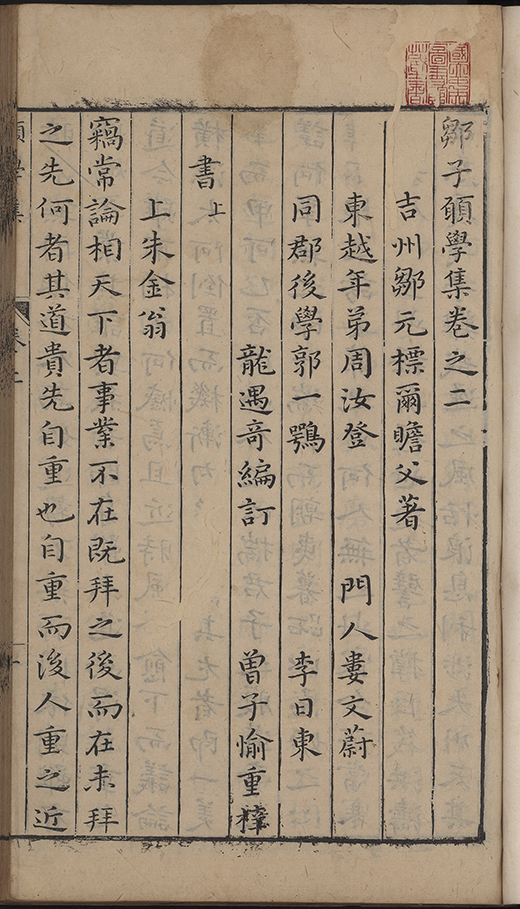 鄒子願學集卷之二
吉州鄒元標爾瞻父著
東越年弟周汝登 門人婁文蔚
同郡後學郭一鶚 李日東
龍遇奇編訂 曾子愉重梓
書上
上朱金翁
竊常論相天下者事業不在既拜之後而在未拜
之先何者其道貴先自重也自重而後人重之近